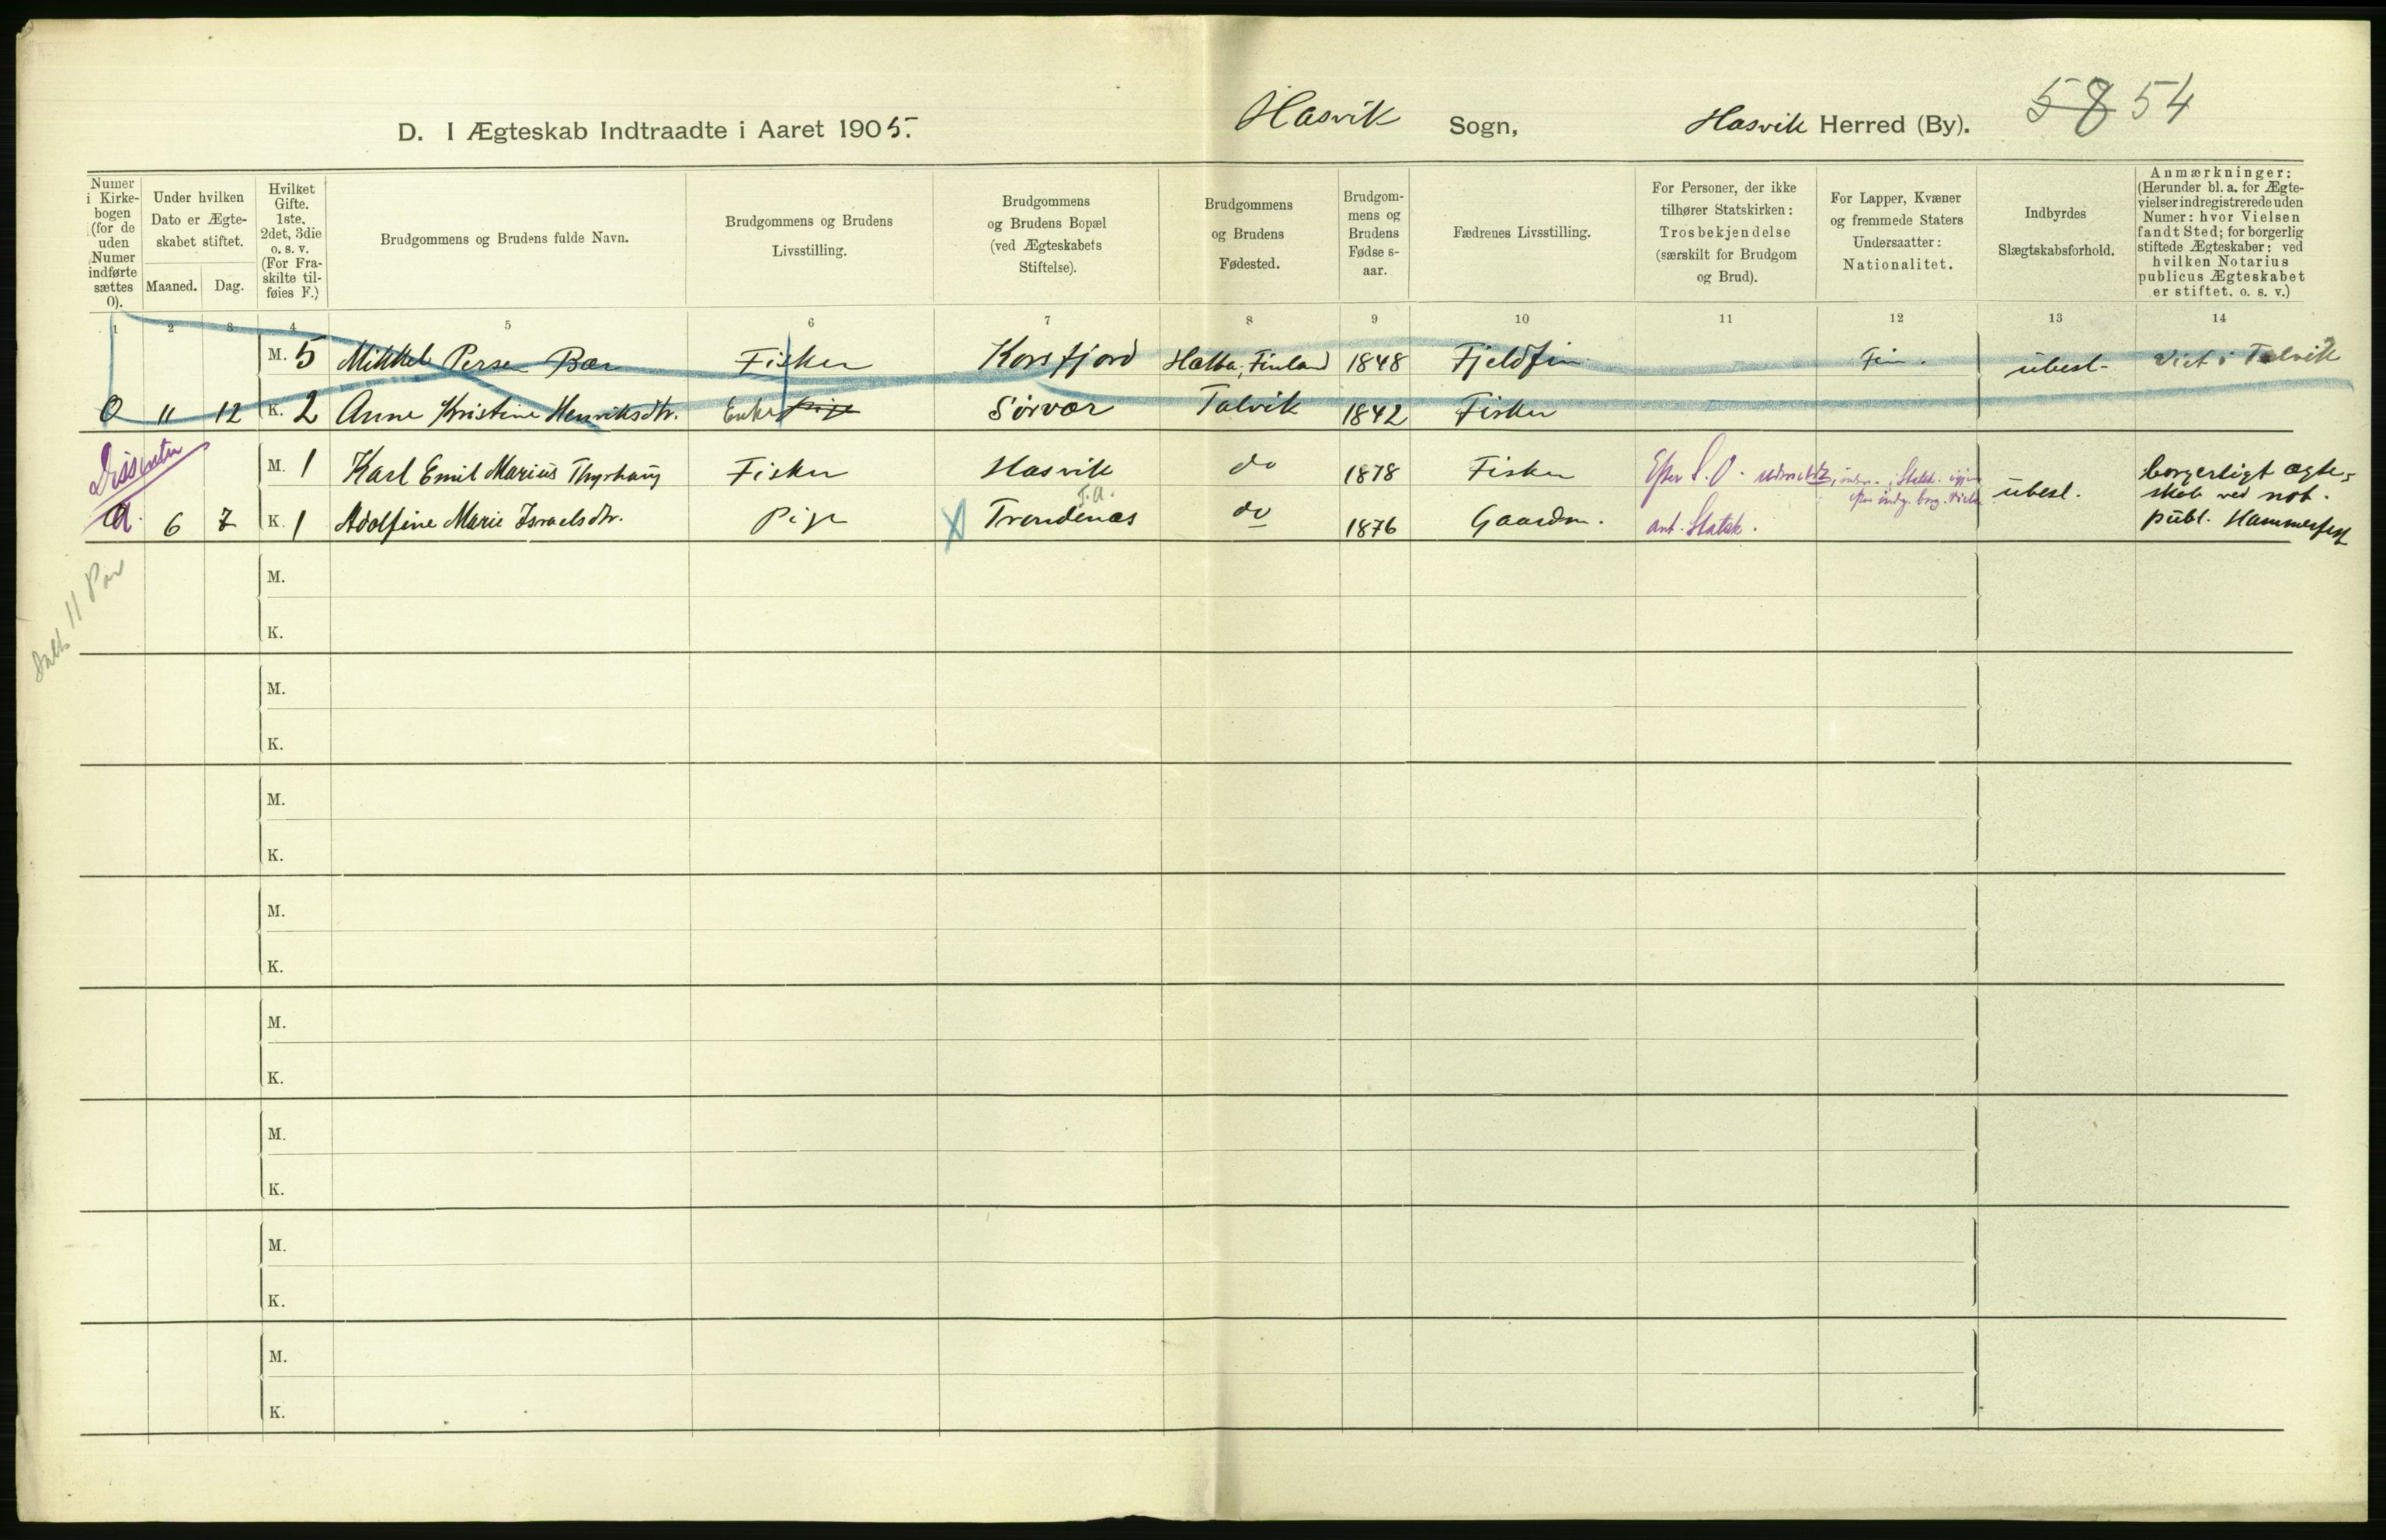 D. I Ægteskab Indtraadte i Aaret 1905. Hasvik Sogn, Hasvik Herred (By). 58 54
Numer i Kirkebogen (for de uden Numer indførte sættes 0).
Under hvilken Dato er Ægteskabet stiftet.
Maaned. Dag.
Hvilket Gifte. 1ste, 2det, 3die o. s. v. (For Fraskilte tilføies F.)
Brudgommens og Brudens fulde Navn.
Brudgommens og Brudens Livsstilling.
Brudgommens og Brudens Bopæl (ved Ægteskabets Stiftelse).
Brudgommens og Brudens Fødested.
Brudgommens og Brudens Fødselsaar.
Fædrenes Livsstilling.
For Personer, der ikke tilhører Statskirken: Trosbekjendelse (særskilt for Brudgom og Brud).
For Lapper, Kvæner og fremmede Staters Undersaatter: Nationalitet.
Indbyrdes Slægtskabsforhold.
Anmærkninger: (Herunder bl. a. for Ægtevielser indregistrerede uden Numer: hvor Vielsen fandt Sted; for borgerlig stiftede Ægteskaber: ved hvilken Notarius publicus Ægteskabet er stiftet, o. s. v.)
1 2 3 4 5 6 7 8 9 10 11 12 13 14
M. 5 Mikkel Persen Bær Fisker Korsfjord Hatta, Finland 1848 Fjeldfin Fin. ubesl. Viet i Talvik
0 11 12 K. 2 Anne Kristine Henriksdtr. Enke Pige Sørvær Talvik 1842 Fisker
Dissenter
M. 1 Karl Emil Marius Thyrhaug Fisker Hasvik do 1878 Fisker Efter S. O. udmeldt, ubesl. borgerligt ægte-
skab ved not.
0. 6 7 K. 1 Adolfine Marie Israelsdtr. Pige Trondenæs T.A. do 1876 Gaardm. ant. Statsk. publ. Hammerfest
11 Par
M.
K.
M.
K.
M.
K.
M.
K.
M.
K.
M.
K.
M.
K.
M.
K.